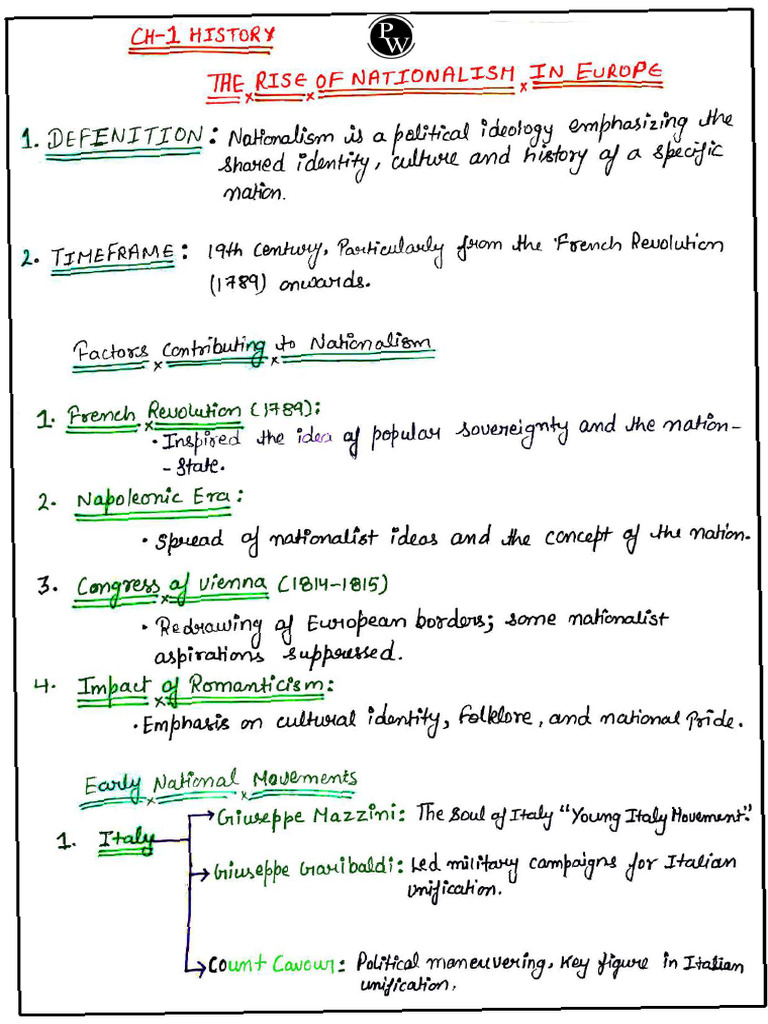 CH-1 HISTORY
PW
THE RISE OF NATIONALISM IN EUROPE
1. DEFINITION: Nationalism is a political ideology emphasizing the
shared identity, culture and history of a specific
nation.
2. TIMEFRAME: 19th Century, Particularly from the French Revolution
(1789) onwards.
Factors Contributing to Nationalism
1. French Revolution (1789):
• Inspired the idea of popular sovereignty and the nation-
-state.
2. Napoleonic Era:
• Spread of nationalist ideas and the concept of the nation.
3. Congress of Vienna (1814-1815)
• Redrawing of European borders; some nationalist
aspirations suppressed.
4. Impact of Romanticism:
• Emphasis on cultural identity, folklore, and national Pride.
Early National Movements
1. Italy
Giuseppe Mazzini: The Soul of Italy "Young Italy Movement".
Giuseppe Garibaldi: Led military campaigns for Italian
unification.
Count Cavour: Political maneuvering, Key figure in Italian
unification.